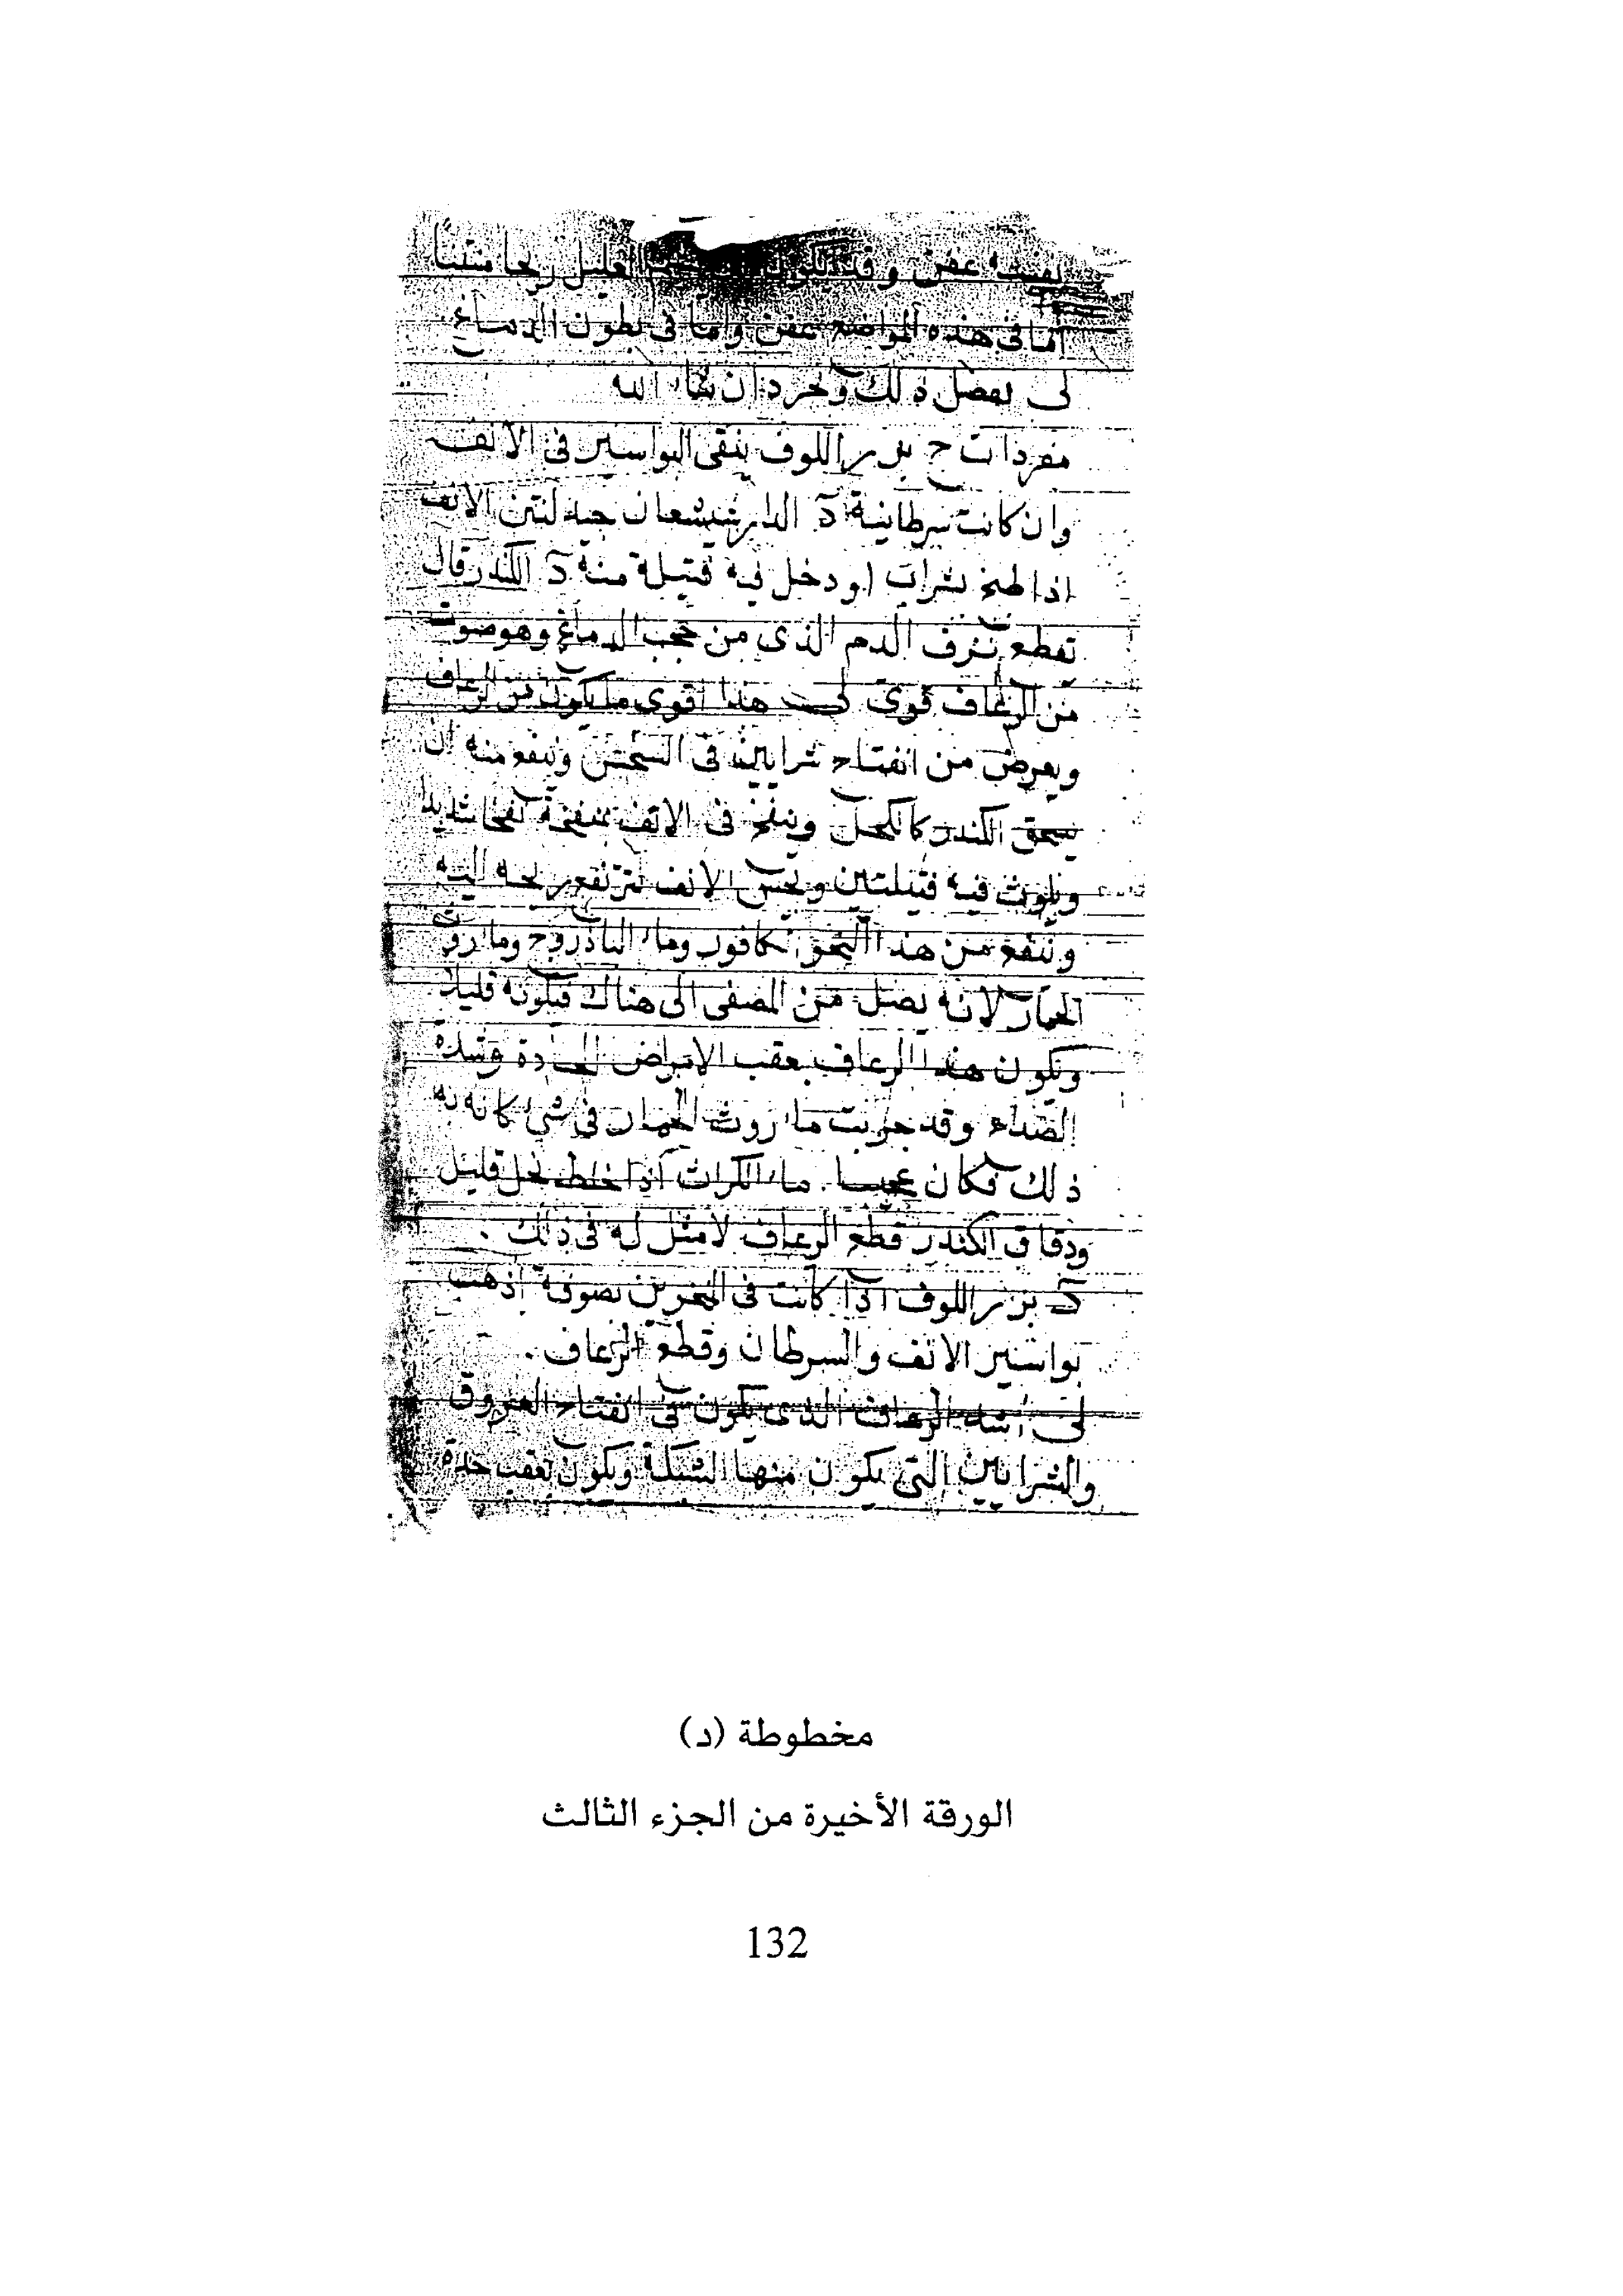 بنفسه عفن وقد يكون العليل ريحا منتنا
اما فى هذه المواضع عفن واما فى بطون الدماغ
لى يفصل ذلك ويحرر ان شاء الله
مفردات ج بزر اللوف ينقى البواسير فى الانف
وان كانت سرطانية د الدارشيشعان جيد لنتن الانف
اذا طبخ بشراب او دخل فيه فتيلة منه د الكندر قال
تقطع نزف الدم الذى من حجب الدماغ وهو صوت
من الرعاف قوى لى هذا اقوى ما يكون من الرعاف
ويعرض من انفتاح شرايين فى وينفع منه ان
يسحق الكندر كالكحل وينفخ فى الانف بمنفخة نفخا شديدا
ويلوث فيه فتيلتين ويحبس الانف ريحه اليه
وينفع من هذا كافور وماء الباذروج وماء روث
الحمار لانه يصل من المصفى الى هناك فيكونه قليلا
ويكون هذا الرعاف بعقب الامراض الحادة وشدة
الصداع وقد جربت ماء روث الحمار فى شى كانه به
ذلك فكان عجيبا. ماء الكراث اذا خلط بخل قليل
ودقاق الكندر قطع الرعاف لا مثل له فى ذلك.
د بزر اللوف اذا كانت فى المنخرين بصوفة اذهب
بواسير الانف والسرطان وقطع الرعاف.
لى اشد الرعاف الذى يكون فى انفتاح العروق
والشرايين التى يكون منها الشبكة ويكون بعقب حدة
مخطوطة (د)
الورقة الأخيرة من الجزء الثالث
132